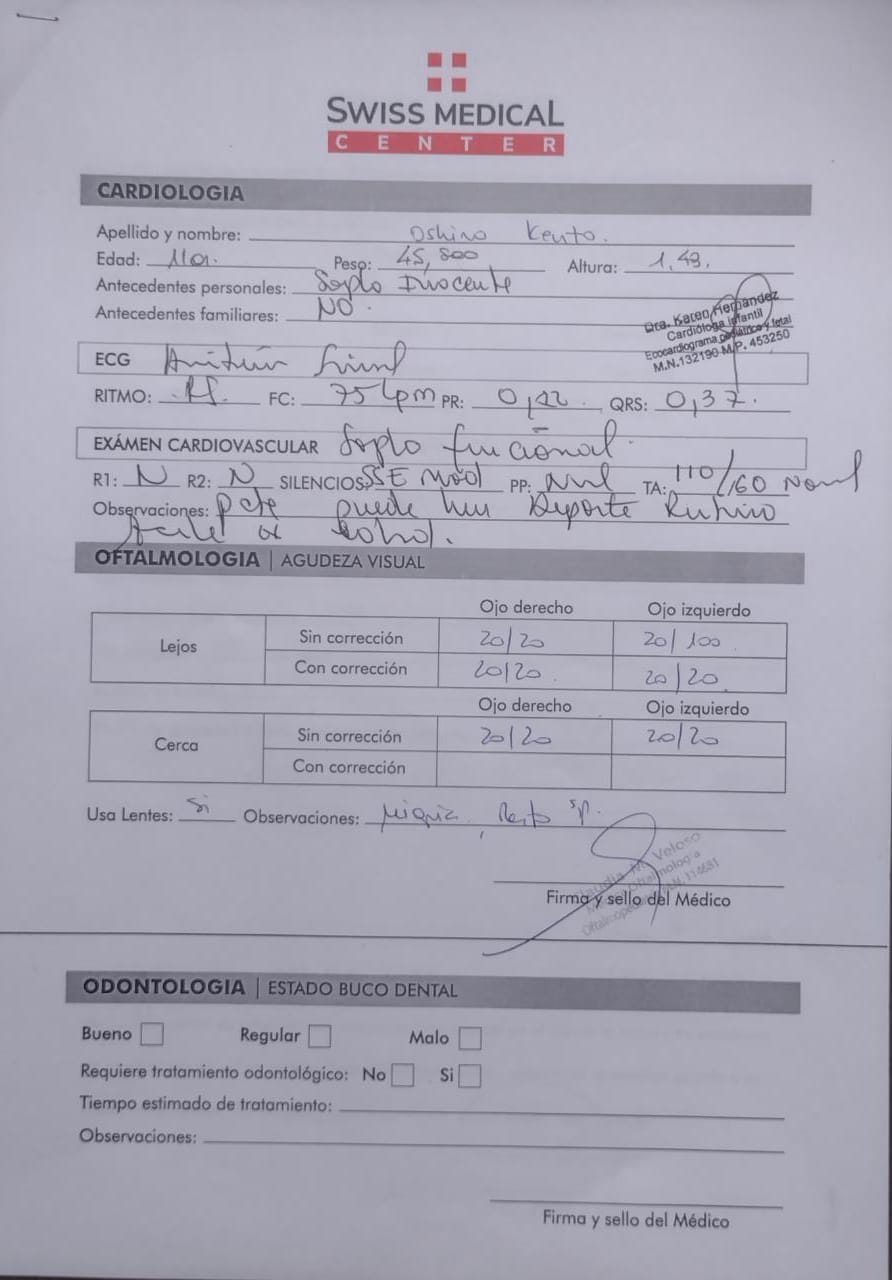 SWISS MEDICAL
CENTER
CARDIOLOGIA
Apellido y nombre: Oshiro Kento.
Edad: 11a. Peso: 45,800 Altura: 1.49.
Antecedentes personales: Soplo Inocente
Antecedentes familiares: NO.
Dra. Karen Hernandez
Cardióloga Infantil
Ecocardiograma pediátrico y fetal
M.N.132190 M.P. 453250
ECG
RITMO: FC: 75 lpm PR: 0,12 QRS: 0,37.
EXÁMEN CARDIOVASCULAR Soplo funcional.
R1: N R2: N SILENCIOS: PP: TA: 110/60
Observaciones: pcte puede Deporte
OFTALMOLOGIA | AGUDEZA VISUAL
Ojo derecho Ojo izquierdo
Lejos Sin corrección 20/20 20/100
Con corrección 20/20 20/20
Ojo derecho Ojo izquierdo
Cerca Sin corrección 20/20 20/20
Con corrección
Usa Lentes: Si Observaciones:
Claudia M. Veloso
Firma y sello del Médico
ODONTOLOGIA | ESTADO BUCO DENTAL
Bueno Regular Malo
Requiere tratamiento odontológico: No Si
Tiempo estimado de tratamiento:
Observaciones:
Firma y sello del Médico